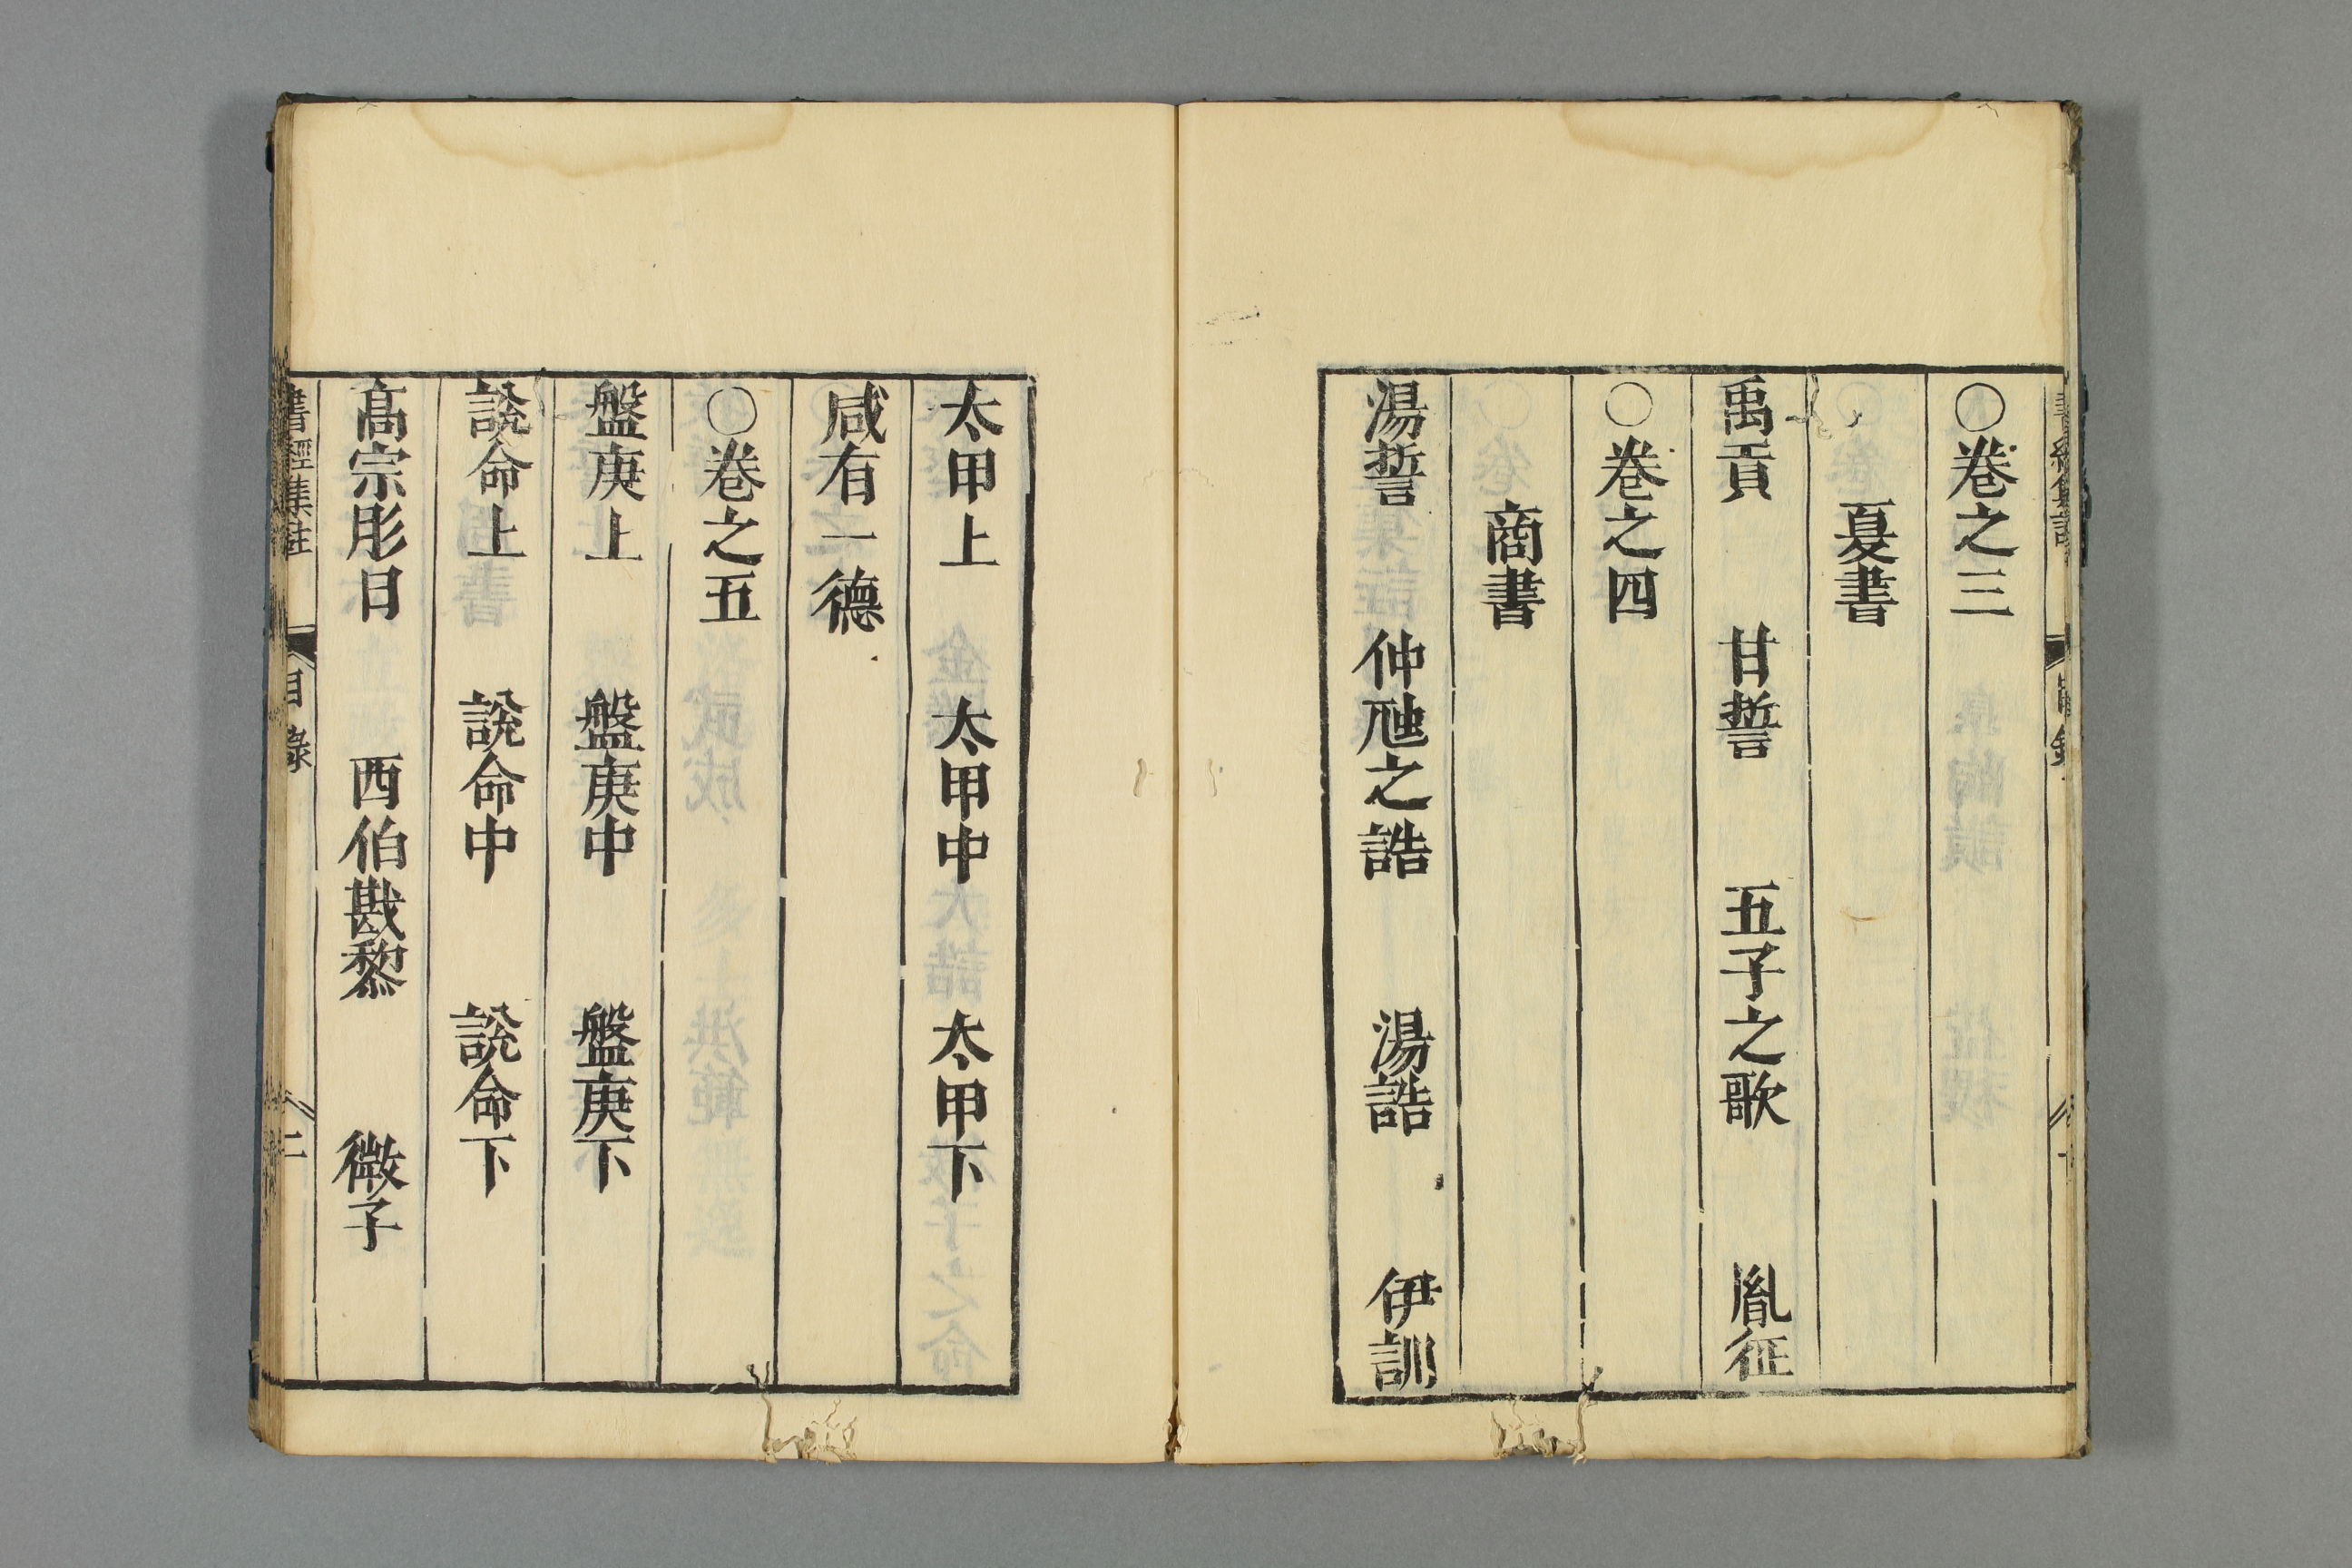 ○巻之三
夏書
禹貢　甘誓　五子之歌　胤征
○巻之四
商書
湯誓　仲虺之誥　湯誥　伊訓
太甲上　太甲中　太甲下
咸有一德
○巻之五
盤庚上　盤庚中　盤庚下
說命上　說命中　說命下
髙宗肜日　西伯戡黎　微子
書經集註　目錄　二